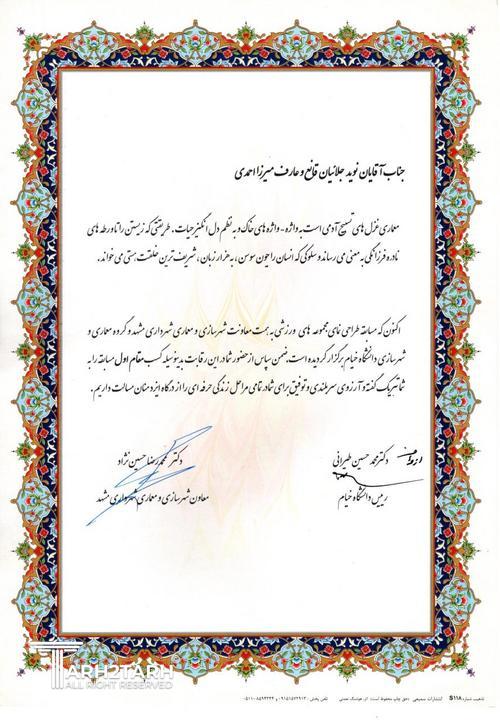 جناب آقایان نوید جلائیان قانع و عارف میرزا احمدی
معماری غزل های تسبیح آدمی است به واژه - واژه های خاک و به نظم دل انگیز حیات. طریقتی که زیستن را تا ورطه های
نادره فرزانگی به معنی می رساند و سلوکی که انسان را چون سوسن، به هزار زبان، شریف ترین خلقت هستی می خواند.
اکنون که مسابقه طراحی نمای مجموعه های ورزشی به همت معاونت شهرسازی و معماری شهرداری مشهد و گروه معماری و
شهرسازی دانشگاه خیام برگزار گردیده است، ضمن سپاس از حضور شما در این رقابت بدینوسیله کسب مقام اول مسابقه را به
شما تبریک گفته و آرزوی سربلندی و توفیق برای شما در تمامی مراحل زندگی حرفه ای را از درگاه ایزد منان مسالت داریم.
دکتر محمد حسین طهرانی
دکتر محمدرضا حسین نژاد
رییس دانشگاه خیام
معاون شهرسازی و معماری شهرداری مشهد
TARH2TARH
ALL RIGHT RESERVED
تذهیب شماره S118 انتشارات سمیعی حق چاپ محفوظ است